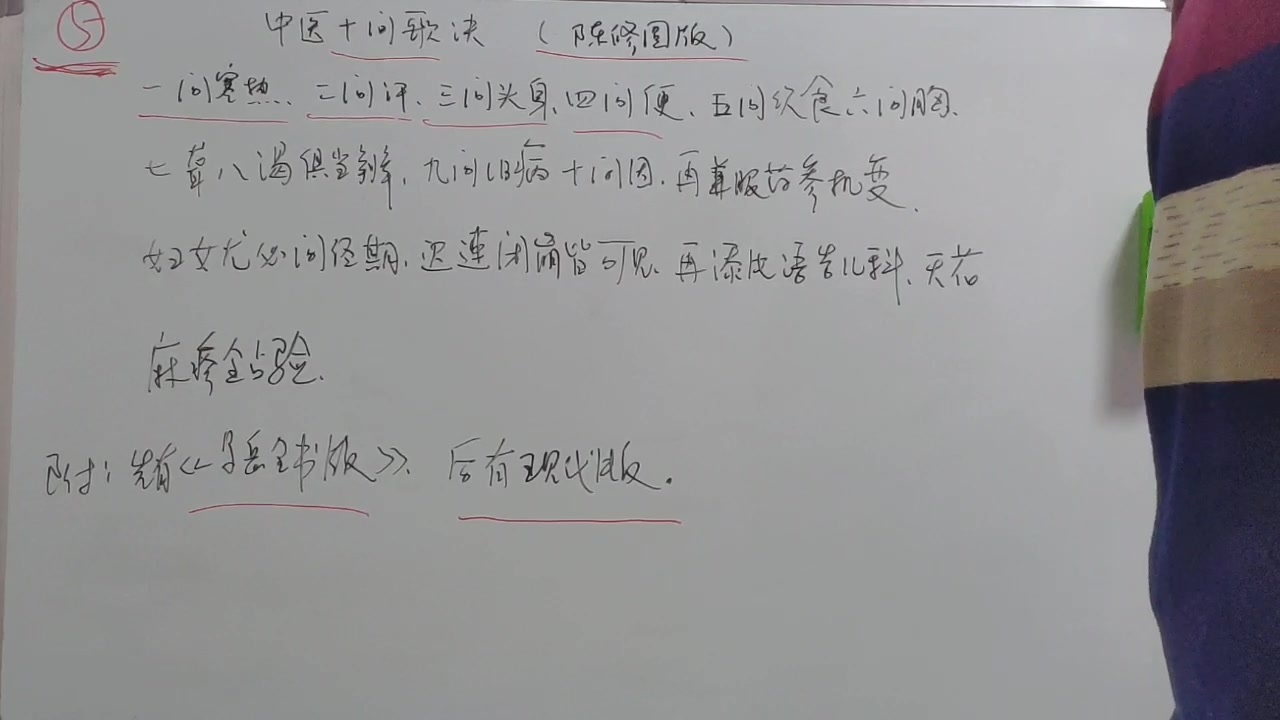 ⑤
中医十问歌决 （陈修园版）
一问寒热、二问汗、三问头身、四问便、五问饮食六问胸、
七聋八渴俱当辨，九问旧病十问因、再兼服药参机变.
妇女尤必问经期、迟速闭崩皆可见、再添片语告儿科、天花
麻疹全占验.
附：先有《景岳全书版》、后有现代版.